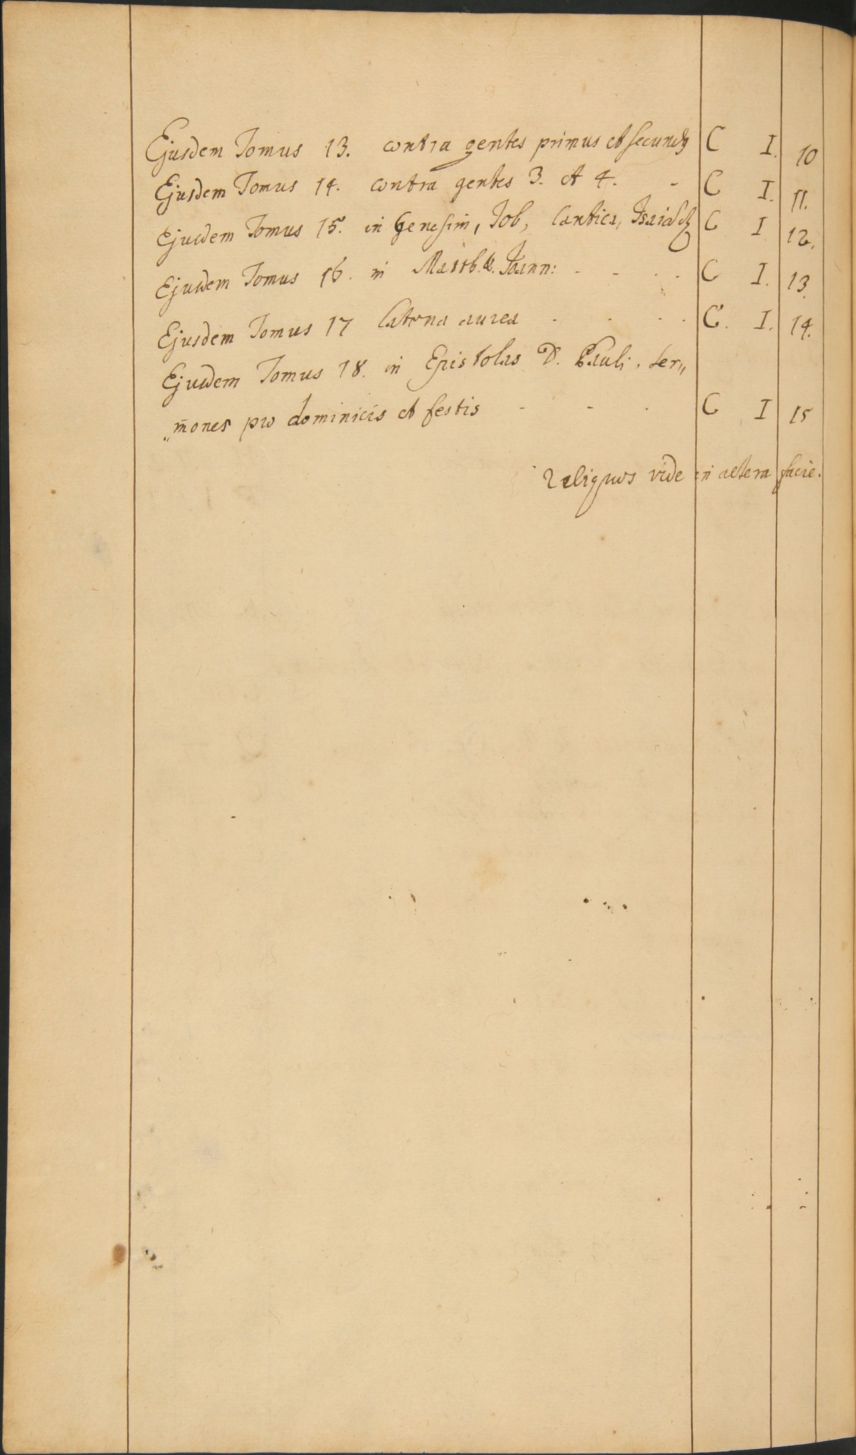 Ejusdem Tomus 13. contra gentes primus et secundq C I. 10
Ejusdem Tomus 14. contra gentes 3. et 4. - C I. 11.
Ejusdem Tomus 15. in Genesim, Iob, Cantica, C I 12.
Ejusdem Tomus 16. in Matth. & Ioann: - - - - C I. 13.
Ejusdem Tomus 17 Catena aurea - - - - C. I. 14.
Ejusdem Tomus 18. in Epistolas D. Pauli. ser„
„mones pro dominicis et festis - - - C I 15
Reliquos vide in altera facie.